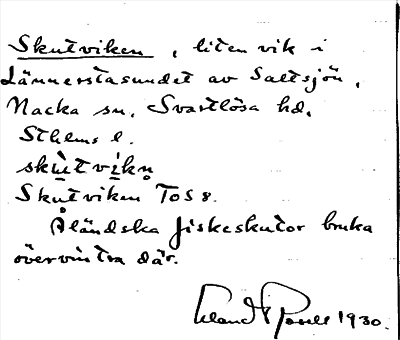 Skutviken, liten vik i
Lännerstasundet av Saltsjön,
Nacka sn, Svartlösa hd,
Sthlms l.
skùtvíkn̥
Skutviken TOS 8.
Åländska fiskeskutor bruka
övervintra där.
1930.